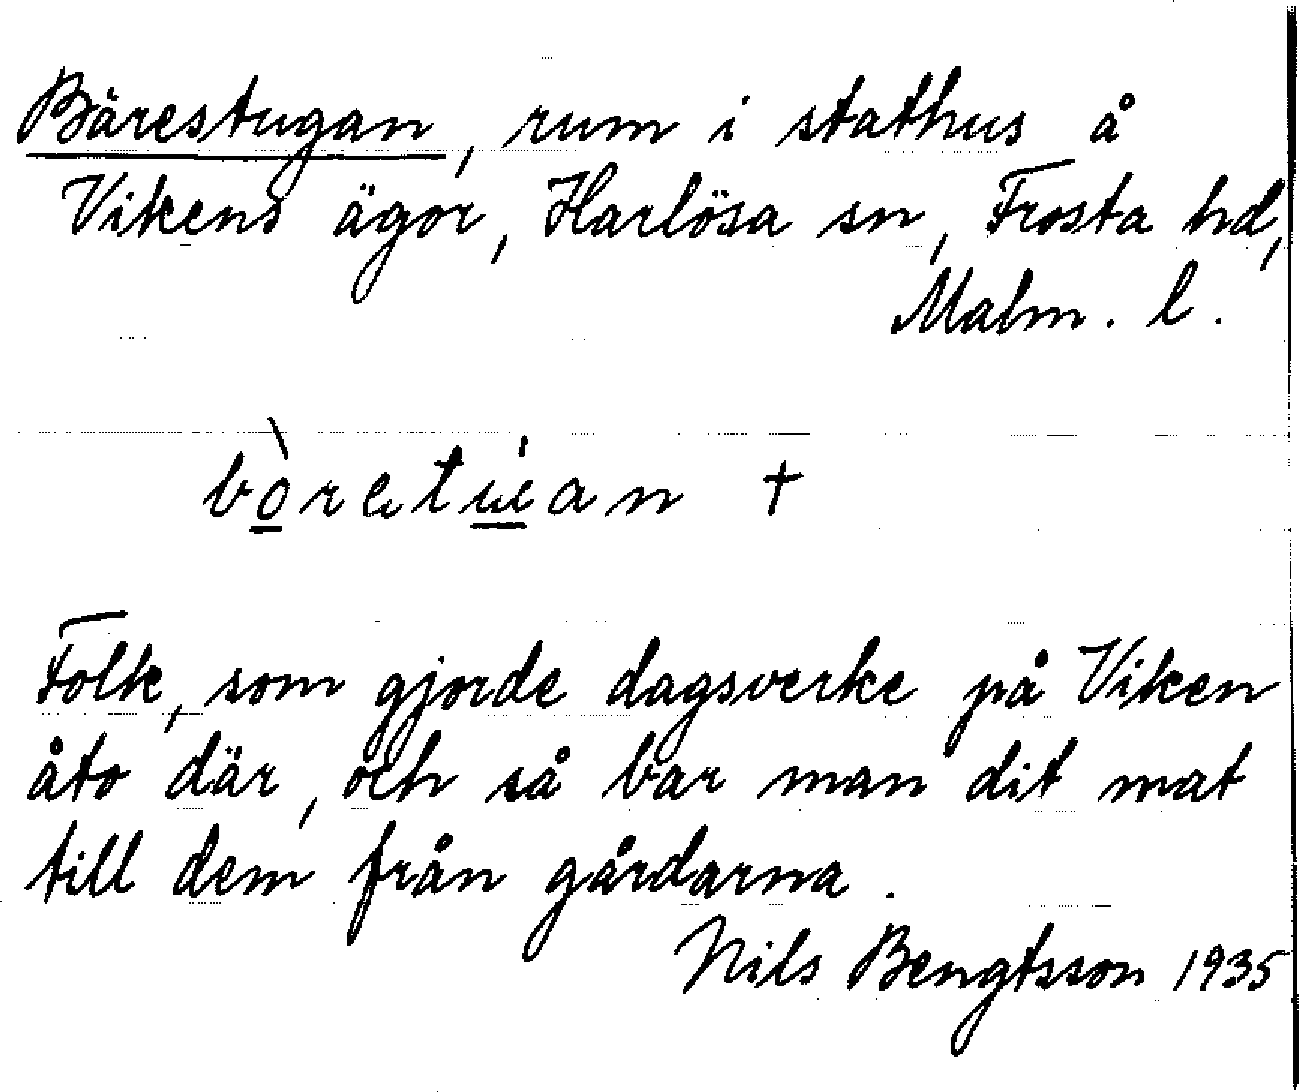 Bärestugan, rum i stathus å
Vikens ägor, Harlösa sn, Frosta hd,
Malm. l.
Folk, som gjorde dagsverke på Viken
åto där, och så bar man dit mat
till dem från gårdarna.
Nils Bengtsson 1935